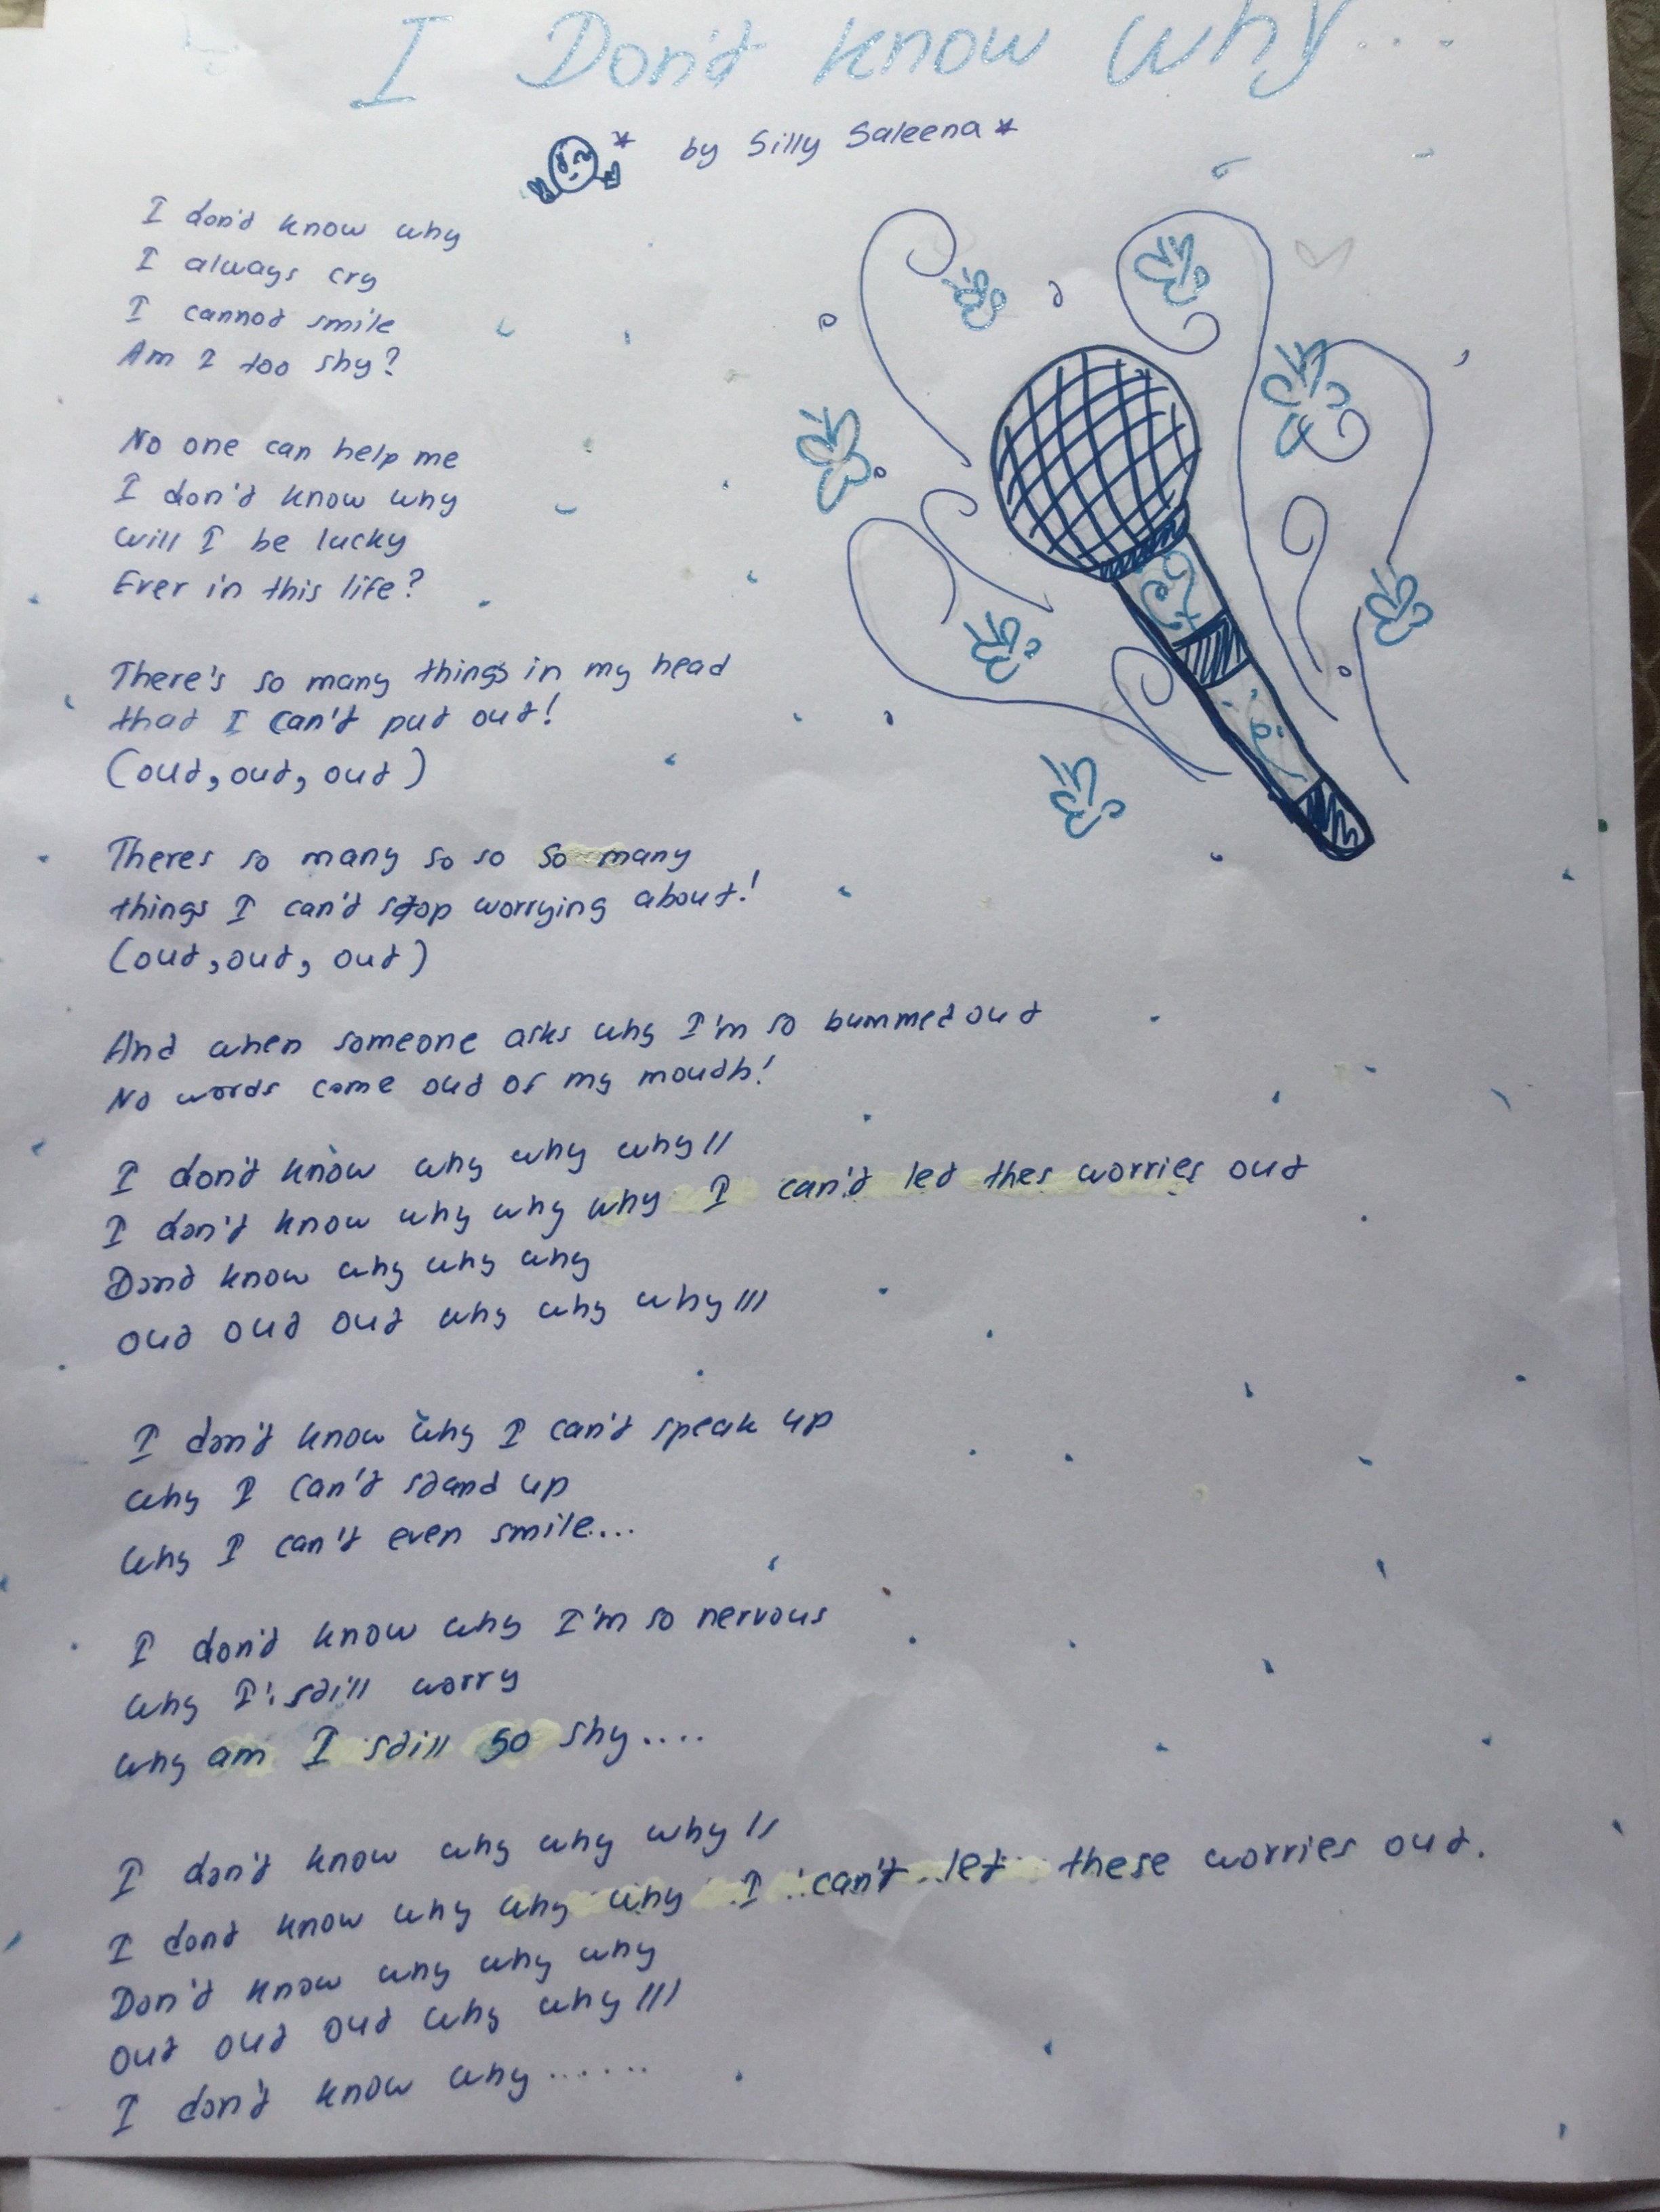 I Don't know why...
* by Silly Saleena *
I don't know why
I always cry
I cannot smile
Am I too shy?
No one can help me
I don't know why
will I be lucky
Ever in this life?
There's so many things in my head
that I can't put out!
(out, out, out)
Theres so many so so so many
things I can't stop worrying about!
(out, out, out)
And when someone asks why I'm so bummed out
No words come out of my mouth!
I don't know why why why!!
I don't know why why why I can't let thes worries out
Dont know why why why
out out out why why why!!!
I don't know why I can't speak up
why I can't stand up
why I can't even smile...
I don't know why I'm so nervous
why I still worry
why am I still so shy....
I don't know why why why!!
I dont know why why why I can't let these worries out.
Don't know why why why
out out out why why!!!
I don't know why......